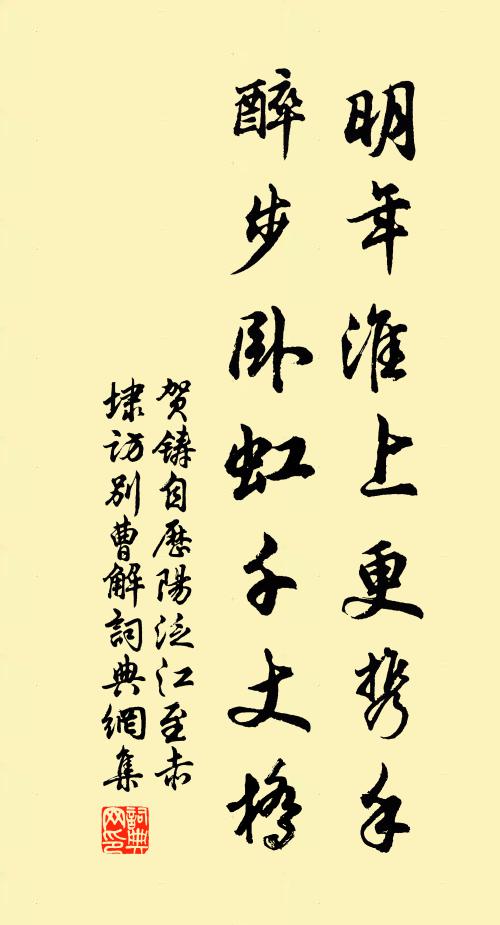 明年淮上更携手
醉步卧虹千丈橋
贺鑄自歷陽泛江至赤
埭访别曹解詞典網集
詞典网印